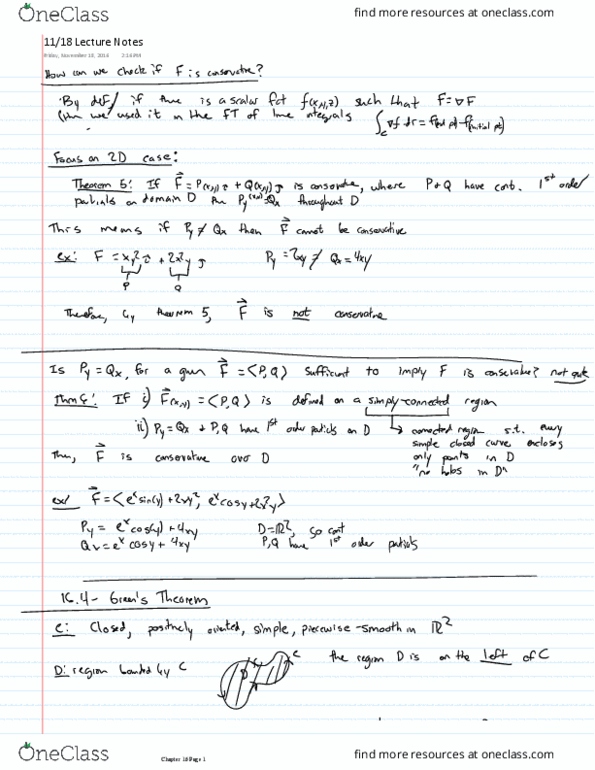 OneClass
find more resources at oneclass.com
11/18 Lecture Notes
Friday, November 18, 2016 2:16 PM
How can we check if F is conservative?
By def/ if there is a scalar fct f(x,y,z) such that F=∇F
(then we used it in the FT of line integrals ∫c ∇f dr = f(final pt) - f(initial pt)
Focus on 2D case:
Theorem 5: If F = P(x,y)i + Q(x,y)j is conservative, where P & Q have cont. 1st order
partials on domain D then Py = Qx throughout D
This means if Py ≠ Qx then F cannot be conservative
ex: F = xy²i + 2x²yj Py = 2xy ≠ Qx = 4xy
P Q
Therefore, by theorem 5, F is not conservative
Is Py = Qx, for a given F = <P,Q> sufficient to imply F is conservative? not quite
Thm 6: If i) F(x,y) = <P,Q> is defined on a simply-connected region
ii) Py = Qx & P,Q have 1st order partials on D
connected region s.t. every
simple closed curve encloses
only points in D
"no holes in D"
Then, F is conservative over D
ex/ F = <e^x sin(y) + 2xy², e^x cosy + 2x²y>
Py = e^x cos(y) + 4xy D = ℝ², so cont
Qx = e^x cosy + 4xy P,Q have 1st order partials
16.4 - Green's Theorem
C: Closed, positively oriented, simple, piecewise-smooth in ℝ²
the region D is on the left of C
D: region bounded by C
D
C
Chapter 16 Page 1
OneClass
find more resources at oneclass.com